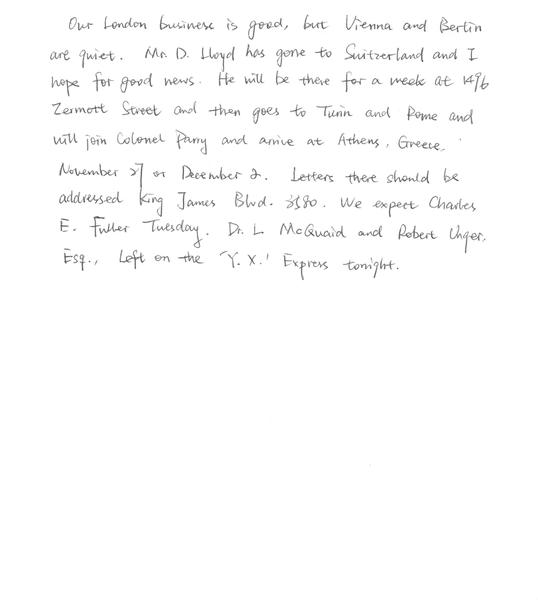 Our London business is good, but Vienna and Berlin
are quiet. Mr. D. Lloyd has gone to Switzerland and I
hope for good news. He will be there for a week at 1496
Zermott Street and then goes to Turin and Rome and
will join Colonel Parry and arrive at Athens, Greece,
November 27 or December 2. Letters there should be
addressed King James Blvd. 3580. We expect Charles
E. Fuller Tuesday. Dr. L. McQuaid and Robert Unger,
Esq., Left on the 'Y. X.' Express tonight.